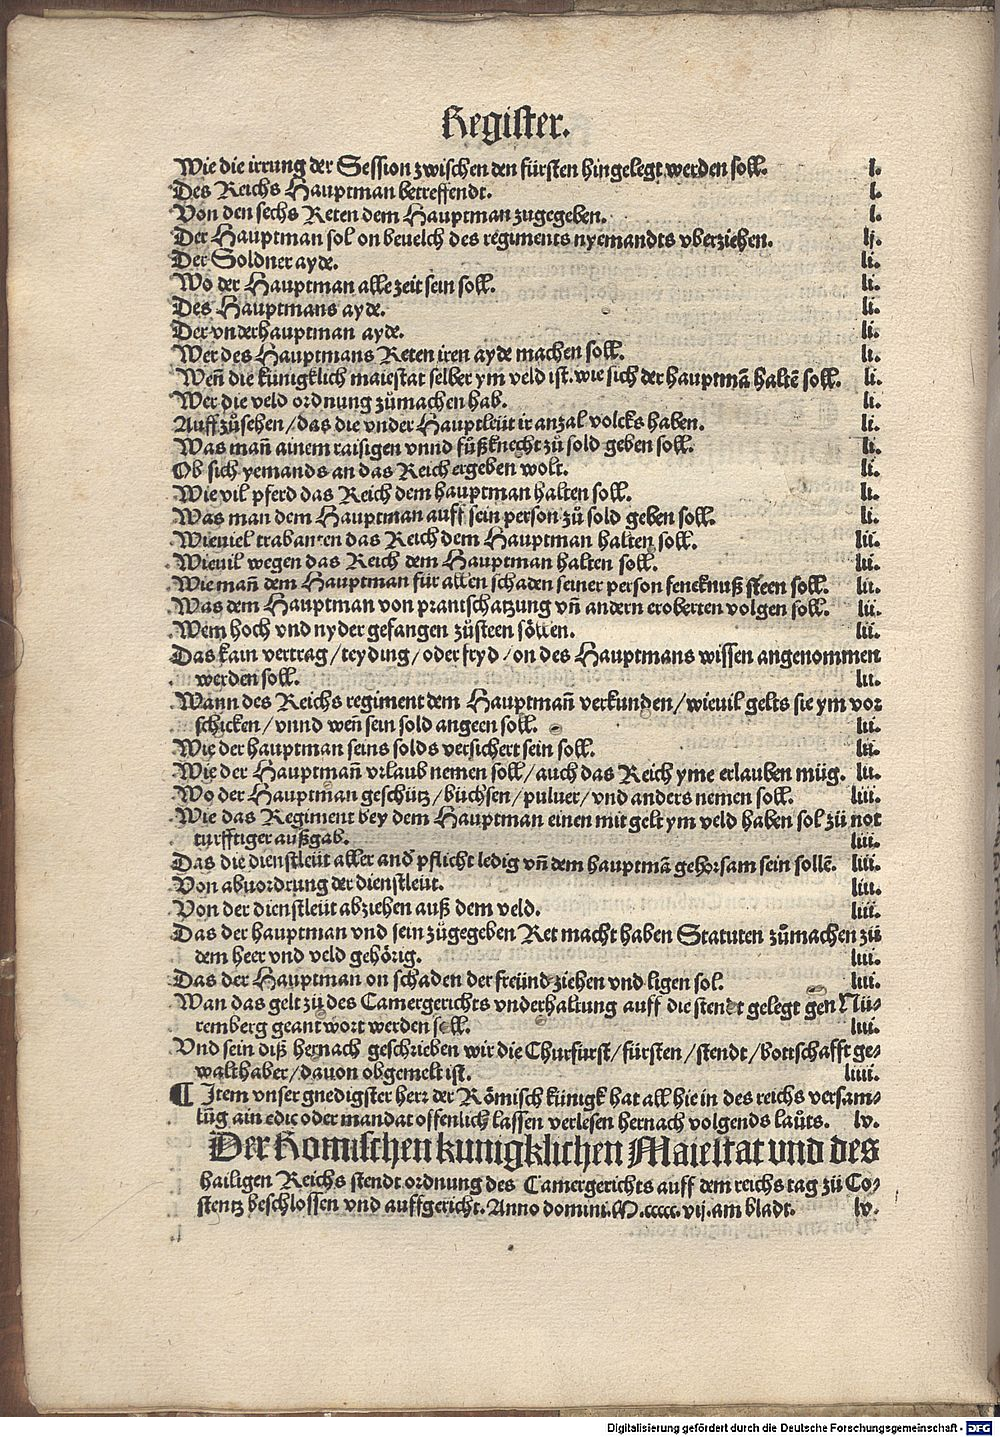 Register.
Wie die irrung der Session zwischen den fürsten hingelegt werden soll. l.
Des Reichs Hauptman betreffendt. l.
Von den sechs Reten dem Hauptman zugegeben. l.
Der Hauptman sol on beuelch des regiments nyemandts vberziehen. lj.
Der Soldner ayde. li.
Wo der Hauptman alle zeit sein soll. li.
Des Hauptmans ayde. li.
Der vnderhauptman ayde. li.
Wer des Hauptmans Reten iren ayde machen soll. li.
Weñ die künigklich maiestat selber ym veld ist. wie sich der hauptmā haltē soll. li.
Wer die veld ordnung zůmachen hab. li.
Auffzůsehen/das die vnder Hauptleüt ir anzal volcks haben. li.
Was mañ ainem raisigen vnnd fůßknecht zů sold geben soll. li.
Ob sich yemands an das Reich ergeben wolt. li.
Wie vil pferd das Reich dem hauptman halten soll. li.
Was man dem Hauptman auff sein person zů sold geben soll. li.
Wieuiel trabanten das Reich dem Hauptman halten soll. lii.
Wieuil wegen das Reich dem Hauptman halten soll. lii.
Wie mañ dem Hauptman für allen schaden seiner person fencknuß steen soll. lii.
Was dem Hauptman von prantschatzung vñ andern eroberten volgen soll. lii.
Wem hoch vnd nyder gefangen zůsteen söllen. lii.
Das kain vertrag/teyding/oder fryd/on des Hauptmans wissen angenommen
werden soll. lii.
Wann des Reichs regiment dem Hauptmañ verkunden/wieuil gelts sie ym vor
schicken/vnnd weñ sein sold angeen soll. lii.
Wie der hauptman seins solds versichert sein soll. lii.
Wie der Hauptmañ vrlaub nemen soll/auch das Reich yme erlauben müg. lii.
Wo der Hauptman geschütz/büchsen/puluer/vnd anders nemen soll. liii.
Wie das Regiment bey dem Hauptman einen mit gelt ym veld haben sol zů not
turfftiger außgab. liii.
Das die dienstleüt aller and᷑ pflicht ledig vñ dem hauptmā gehorsam sein sollē. liii.
Von abuordrung der dienstleüt. liii.
Von der dienstleüt abziehen auß dem veld. liii.
Das der hauptman vnd sein zůgegeben Ret macht haben Statuten zůmachen zů
dem heer vnd veld gehörig. liii.
Das der Hauptman on schaden der freünd ziehen vnd ligen sol. liii.
Wan das gelt zů des Camergerichts vnderhaltung auff die stendt gelegt gen Nü⸗
remberg geantwort werden soll. liii.
Vnd sein diß hernach geschrieben wir die Churfürst/fürsten/stendt/bottschafft ge⸗
walthaber/dauon obgemelt ist. liiii.
¶ Item vnser gnedigster herr der Römisch künigk hat all hie in des reichs versam⸗
lūg ain edic oder mandat offenlich lassen verlesen hernach volgends lauts. lv.
Der Romischen kunigklichen Maiestat vnd des
hailigen Reichs stendt ordnung des Camergerichts auff dem reichs tag zů Co⸗
stentz beschlossen vnd auffgericht. Anno domini. M. ccccc. vij. am bladt. lv.
Digitalisierung gefördert durch die Deutsche Forschungsgemeinschaft - DFG